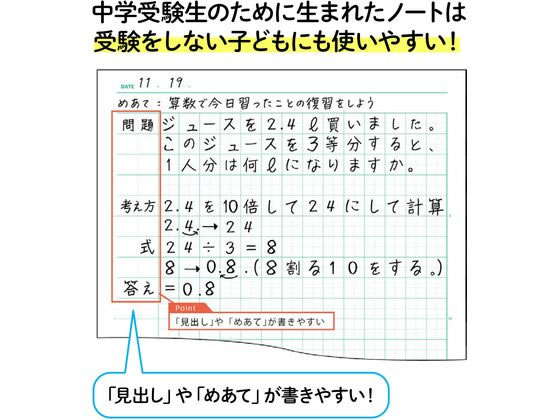 中学受験生のために生まれたノートは
受験をしない子どもにも使いやすい!
DATE 11.19.
めあて：算数で今日習ったことの復習をしよう
問題 ジュースを2.4ℓ買いました。
このジュースを3等分すると、
1人分は何ℓになりますか。
考え方 2.4を10倍して24にして計算
2.4.→24
式 24÷3=8
8→0.8.(8割る10をする。)
答え =0.8
Point
「見出し」や「めあて」が書きやすい
「見出し」や「めあて」が書きやすい!